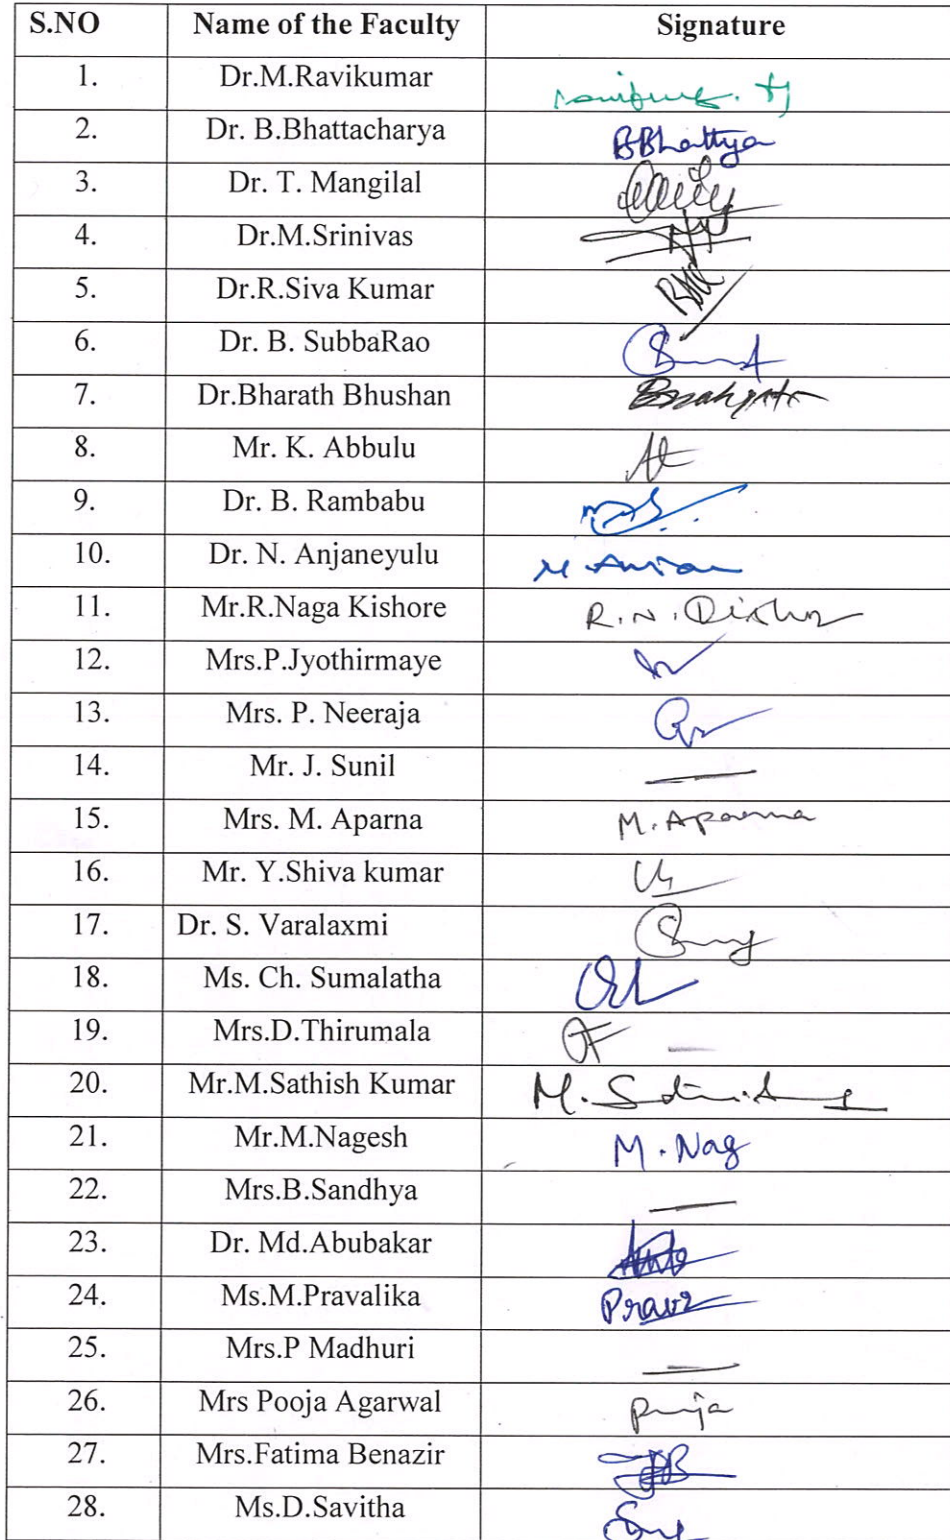 S.NO Name of the Faculty Signature
1. Dr.M.Ravikumar
2. Dr. B.Bhattacharya
3. Dr. T. Mangilal
4. Dr.M.Srinivas
5. Dr.R.Siva Kumar
6. Dr. B. SubbaRao
7. Dr.Bharath Bhushan
8. Mr. K. Abbulu
9. Dr. B. Rambabu
10. Dr. N. Anjaneyulu
11. Mr.R.Naga Kishore R.N.
12. Mrs.P.Jyothirmaye
13. Mrs. P. Neeraja
14. Mr. J. Sunil
15. Mrs. M. Aparna M. Aparna
16. Mr. Y.Shiva kumar
17. Dr. S. Varalaxmi
18. Ms. Ch. Sumalatha
19. Mrs.D.Thirumala
20. Mr.M.Sathish Kumar M.
21. Mr.M.Nagesh M. Nag
22. Mrs.B.Sandhya
23. Dr. Md.Abubakar
24. Ms.M.Pravalika
25. Mrs.P Madhuri
26. Mrs Pooja Agarwal
27. Mrs.Fatima Benazir
28. Ms.D.Savitha